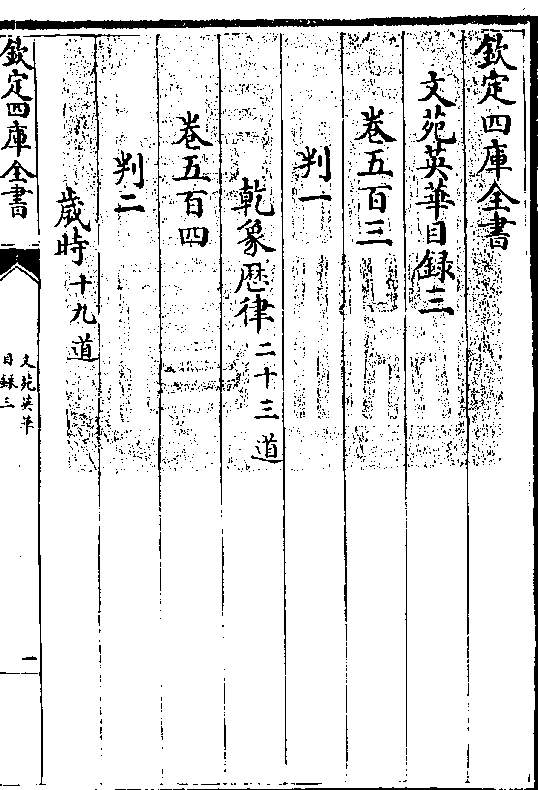 欽定四庫全書
文苑英華目録三
卷五百三
判一
乾象歴律二十三道
卷五百四
判二
歲時十九道
欽定四庫全書
文苑英華
目録三
一